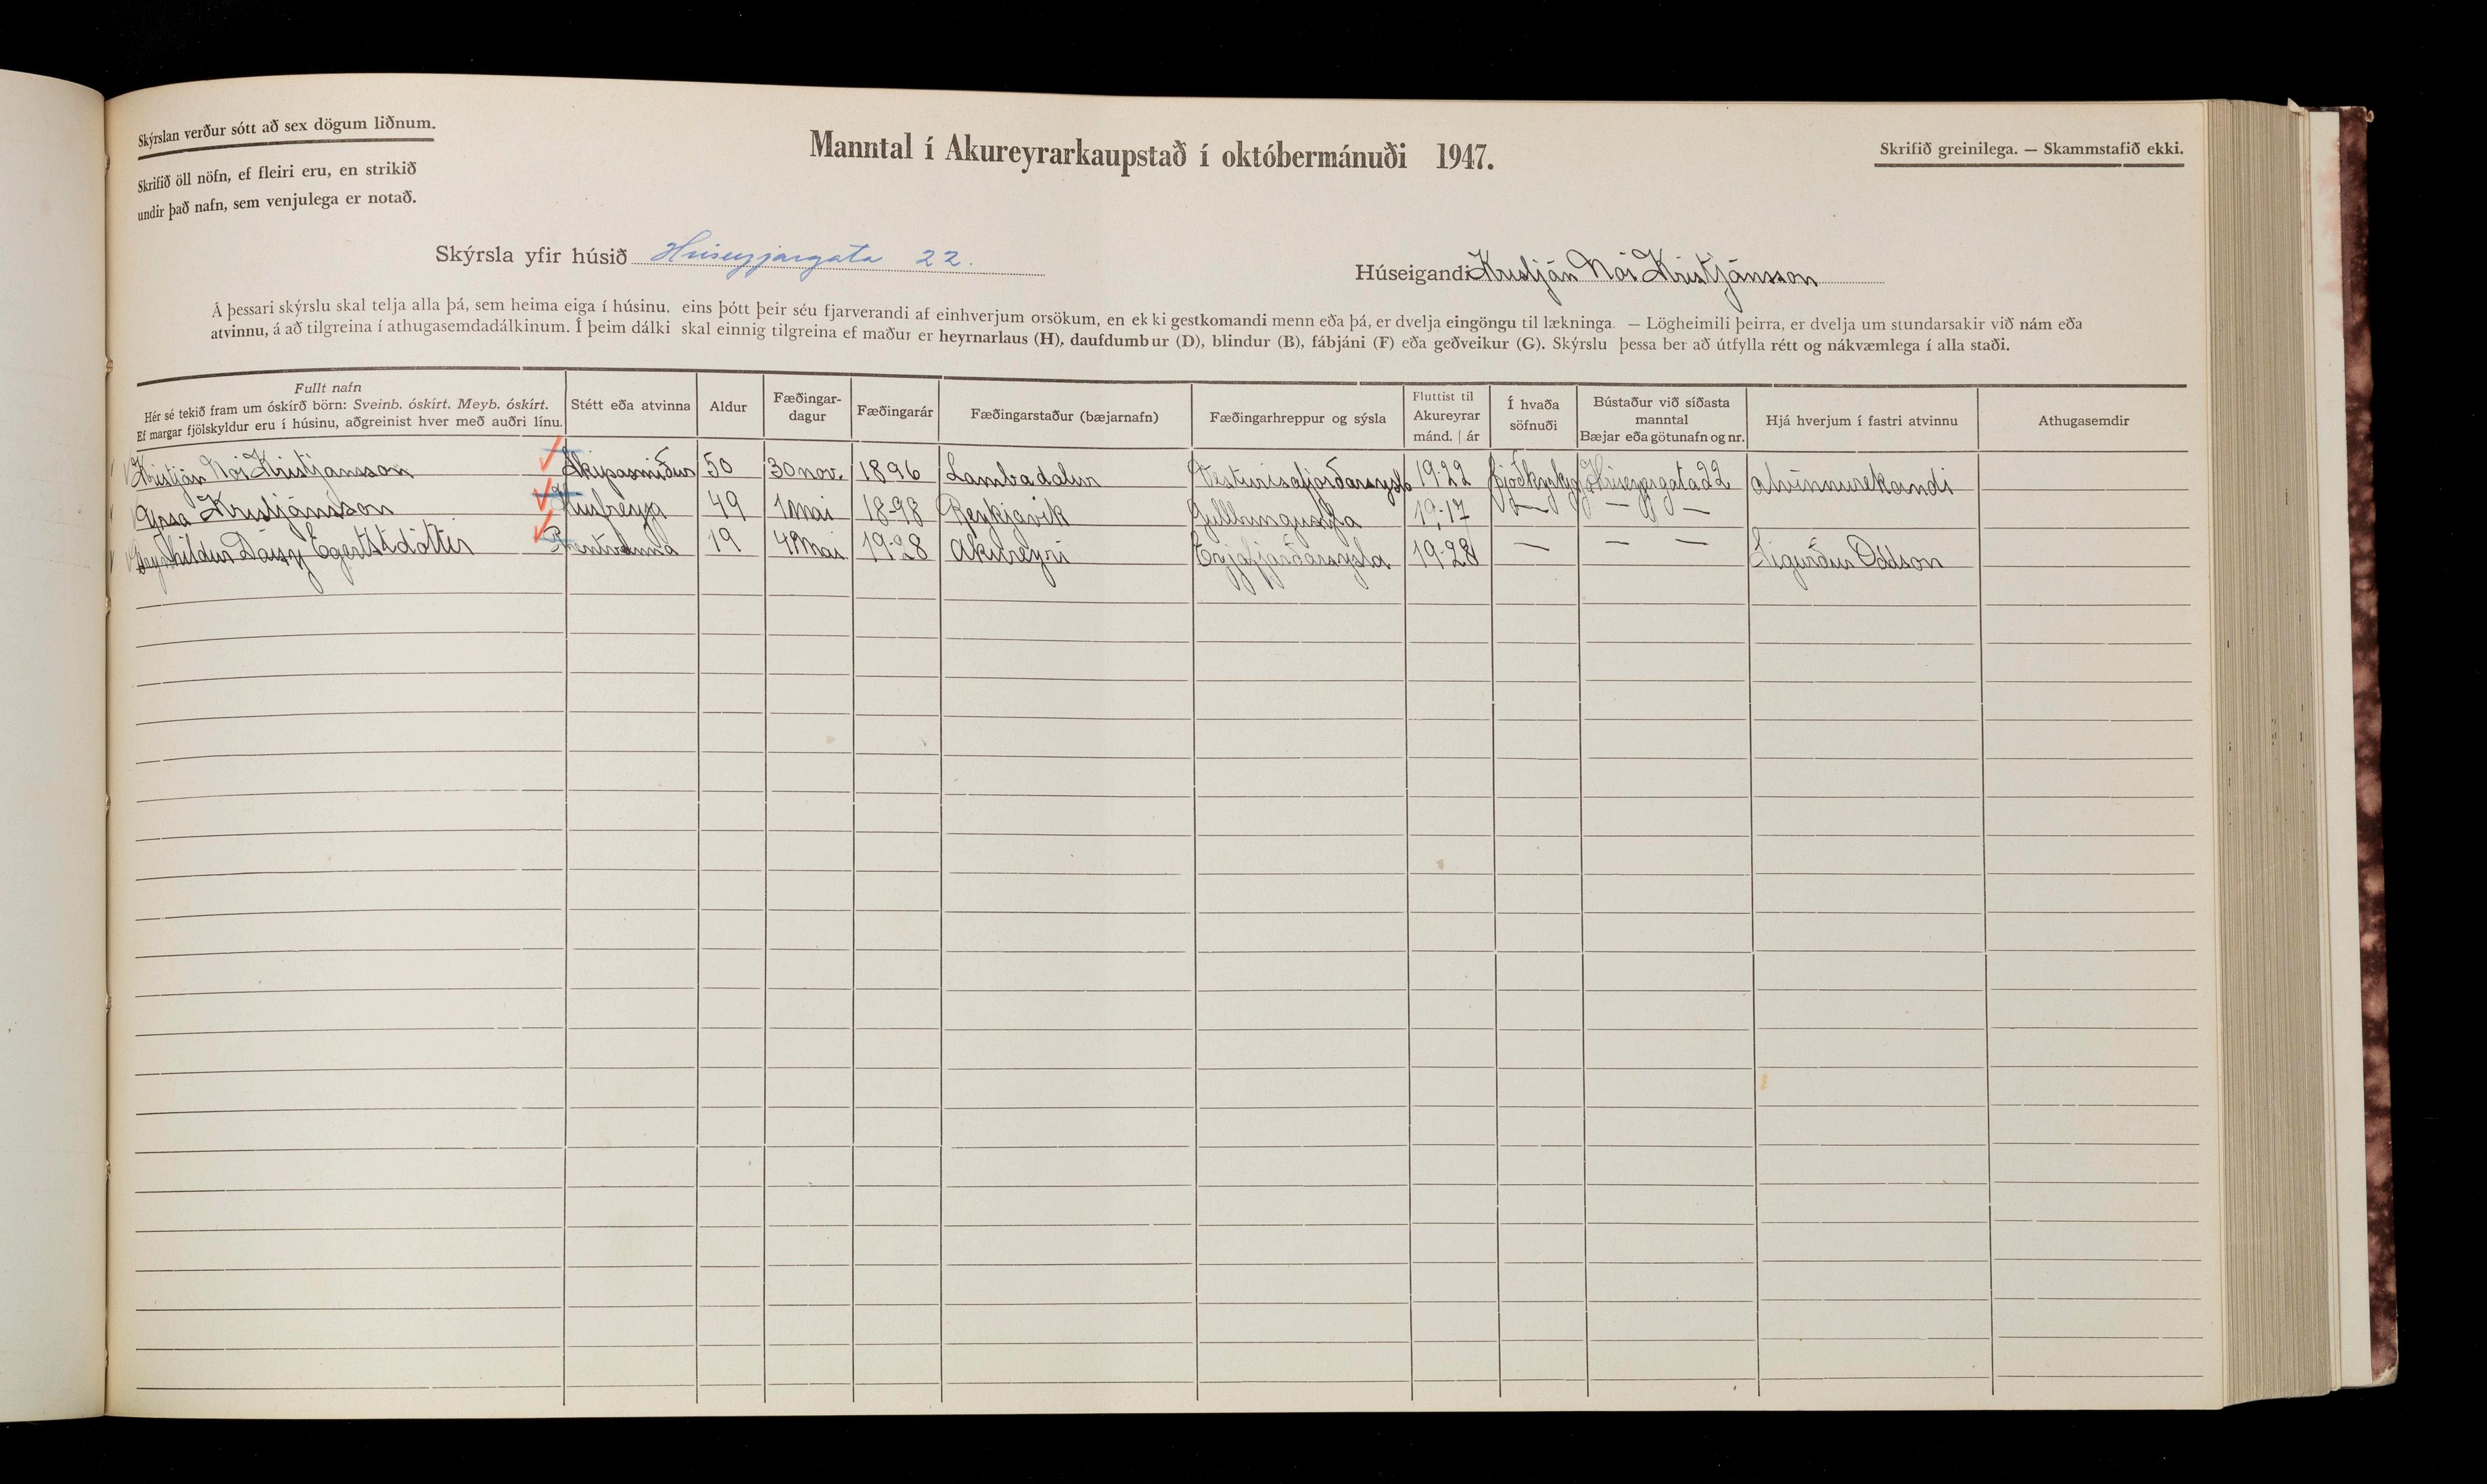 Skýrslan verður sótt að sex dögum liðnum.
Skrifið öll nöfn, ef fleiri eru, en strikið
undir það nafn, sem venjulega er notað.
Manntal í Akureyrarkaupstað í októbermánuði 1947.
Skrifið greinilega. — Skammstafið ekki.
Skýrsla yfir húsið Hríseyjargata 22.
Húseigandi Kristján Nói Kristjánsson
Á þessari skýrslu skal telja alla þá, sem heima eiga í húsinu, eins þótt þeir séu fjarverandi af einhverjum orsökum, en ekki gestkomandi menn eða þá, er dvelja eingöngu til lækninga. — Lögheimili þeirra, er dvelja um stundarsakir við nám eða
atvinnu, á að tilgreina í athugasemdadálkinum. Í þeim dálki skal einnig tilgreina ef maður er heyrnarlaus (H), daufdumbur (D), blindur (B), fábjáni (F) eða geðveikur (G). Skýrslu þessa ber að útfylla rétt og nákvæmlega í alla staði.
Fullt nafn
Hér sé tekið fram um óskírð börn: Sveinb. óskírt. Meyb. óskírt.
Ef margar fjölskyldur eru í húsinu, aðgreinist hver með auðri línu.
Stétt eða atvinna
Aldur
Fæðingar-
dagur
Fæðingarár
Fæðingarstaður (bæjarnafn)
Fæðingarhreppur og sýsla
Fluttist til
Akureyrar
mánd. | ár
Í hvaða
söfnuði
Bústaður við síðasta
manntal
Bæjar eða götunafn og nr.
Hjá hverjum í fastri atvinnu
Athugasemdir
Kristján Nói Kristjansson Skipasmiður 50 30 nov. 1896 Lambadalur Vesturisafjorðarsysla 1922 þjoðkyrkj Hriseyjargata 22 atvinnurekandi
Kristjánsson Husfreyja 49 1 Mai 1898 Reykjavik Gullbringusysla 1917 — — —
Daisy Egertsdóttir 19 4 Mai 1928 Akureyri Eyjafjarðarsysla 1928 — — — Sigurður Oddson